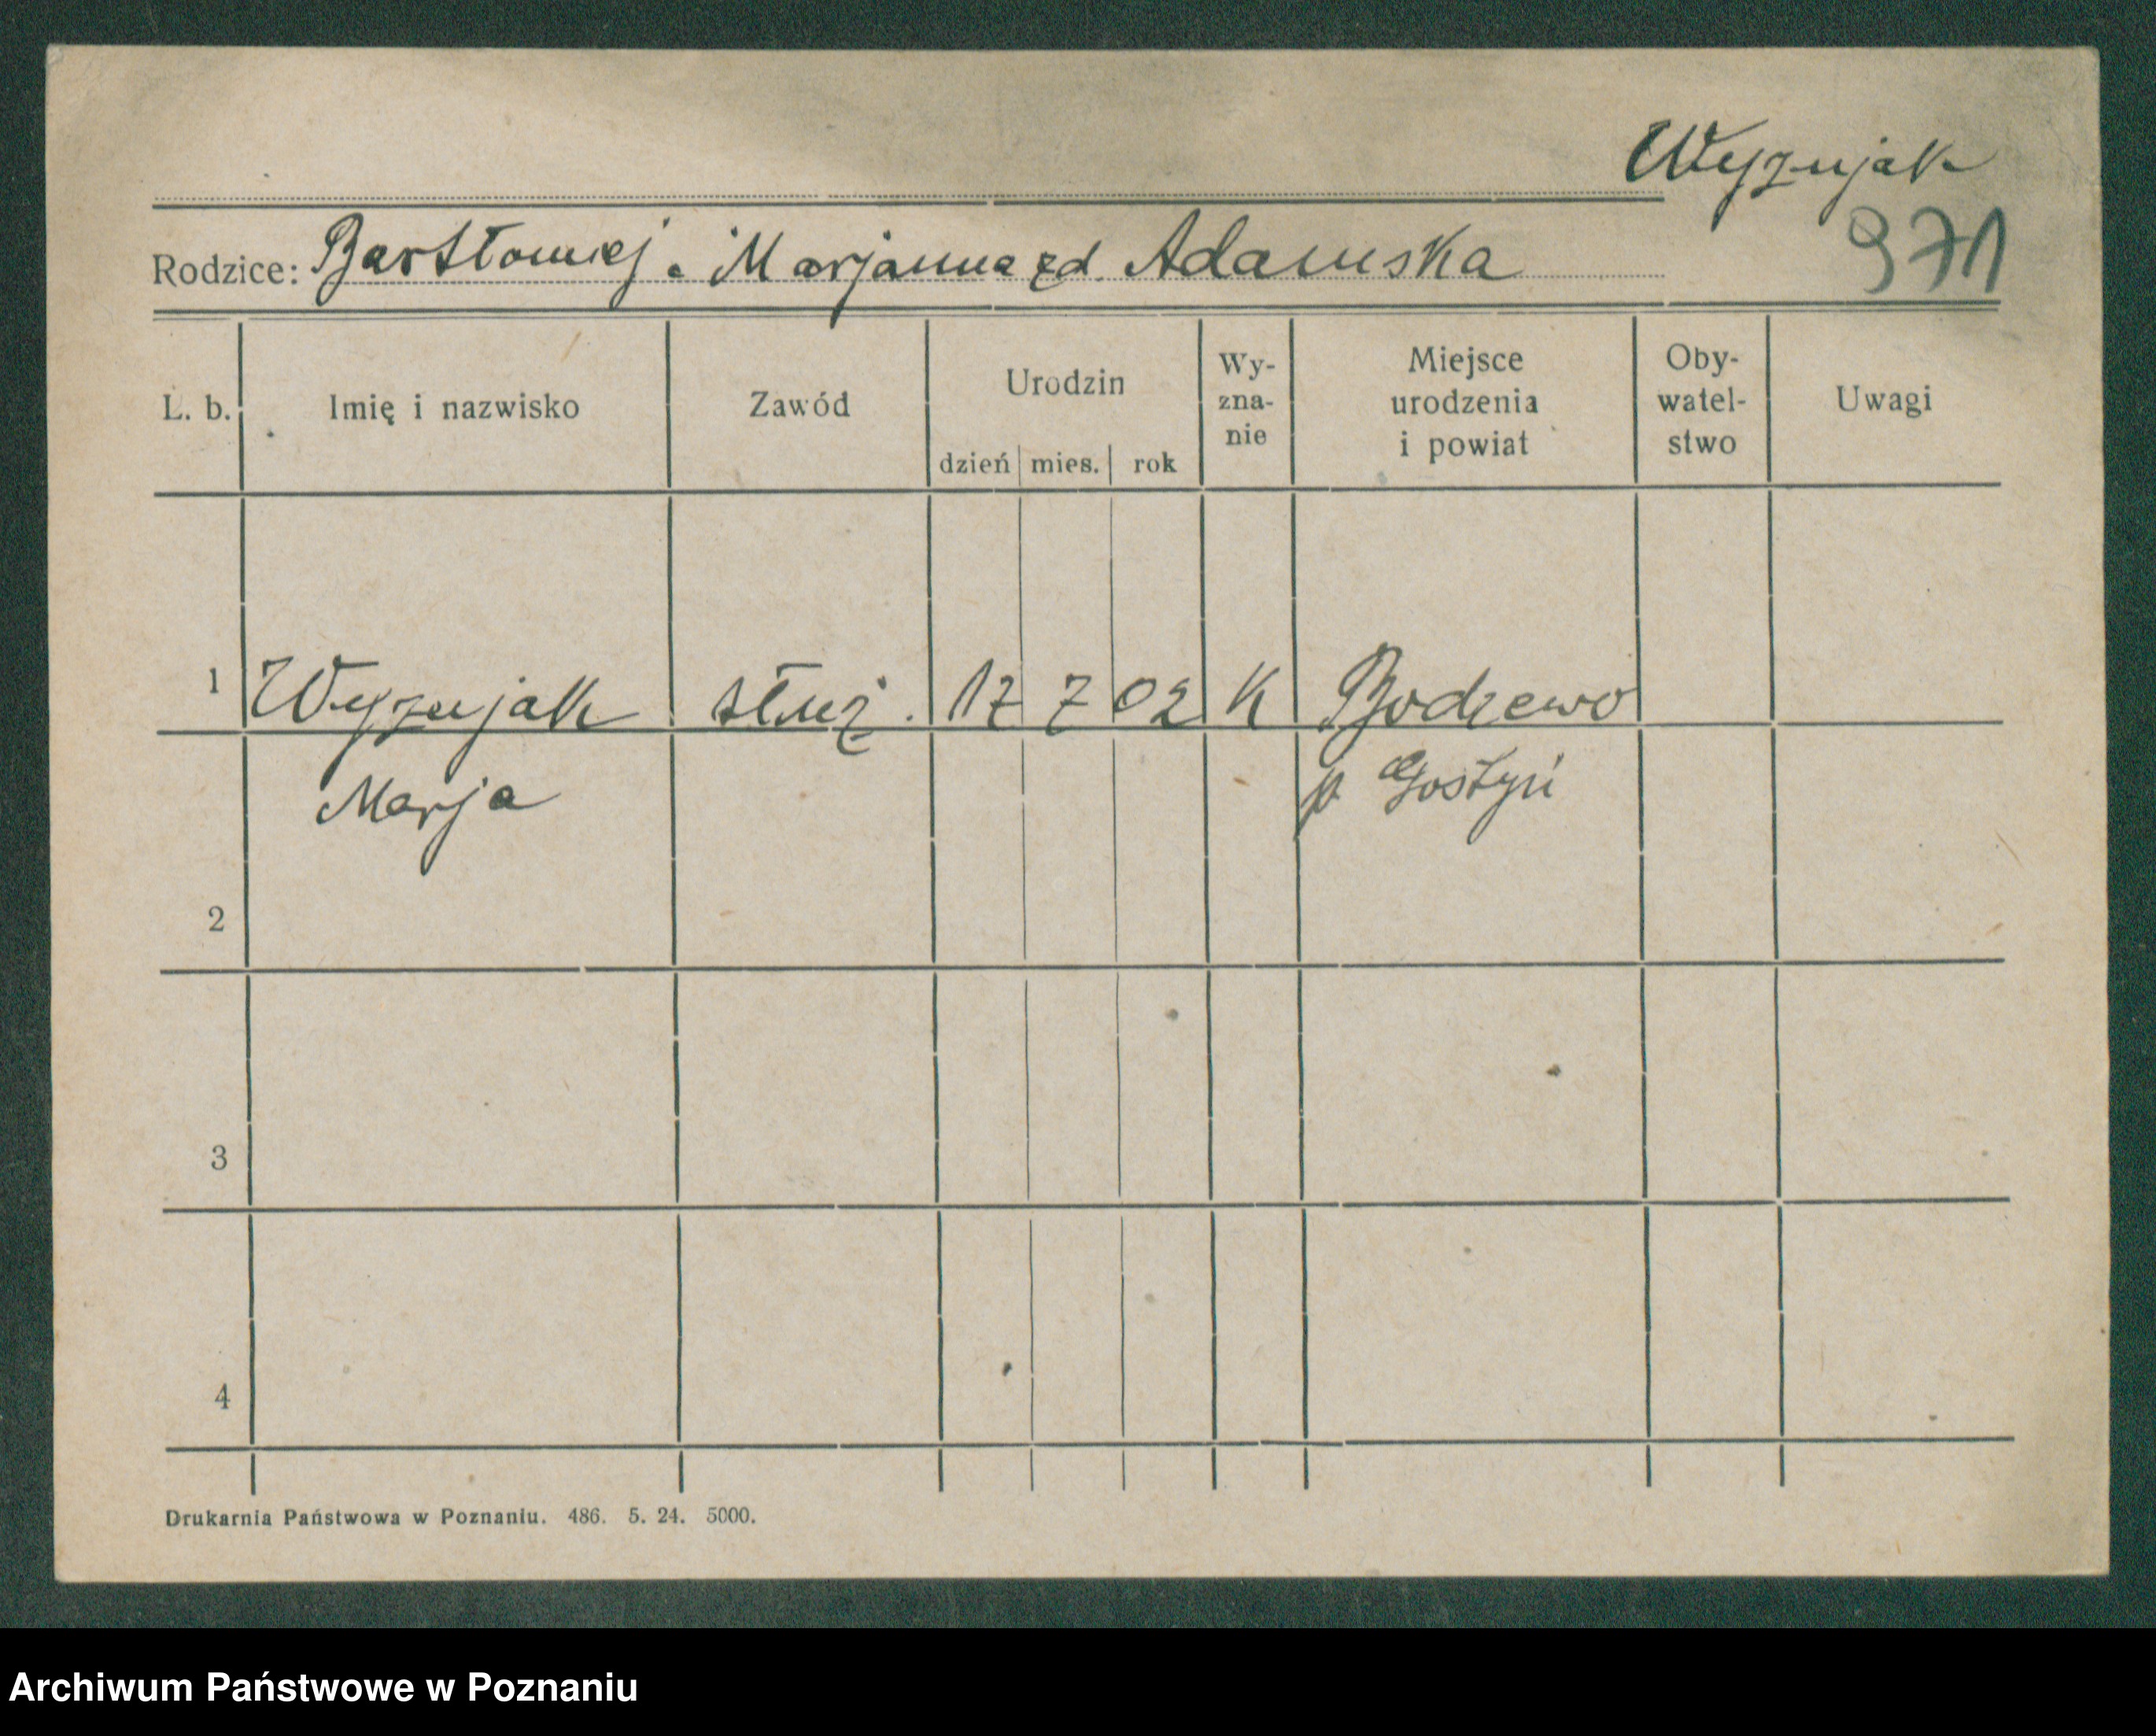 Wyzujak
971
Rodzice: Bartłomiej. Marjanna zd. Adamska
L. b. Imię i nazwisko Zawód Urodzin dzień mies. rok Wy-zna-nie Miejsce urodzenia i powiat Oby-watel-stwo Uwagi
1 Wyzujak służ. 17 7 02 K Bodzewo
Marja p Gostyń
2
3
4
Drukarnia Państwowa w Poznaniu. 486. 5. 24. 5000.
Archiwum Państwowe w Poznaniu